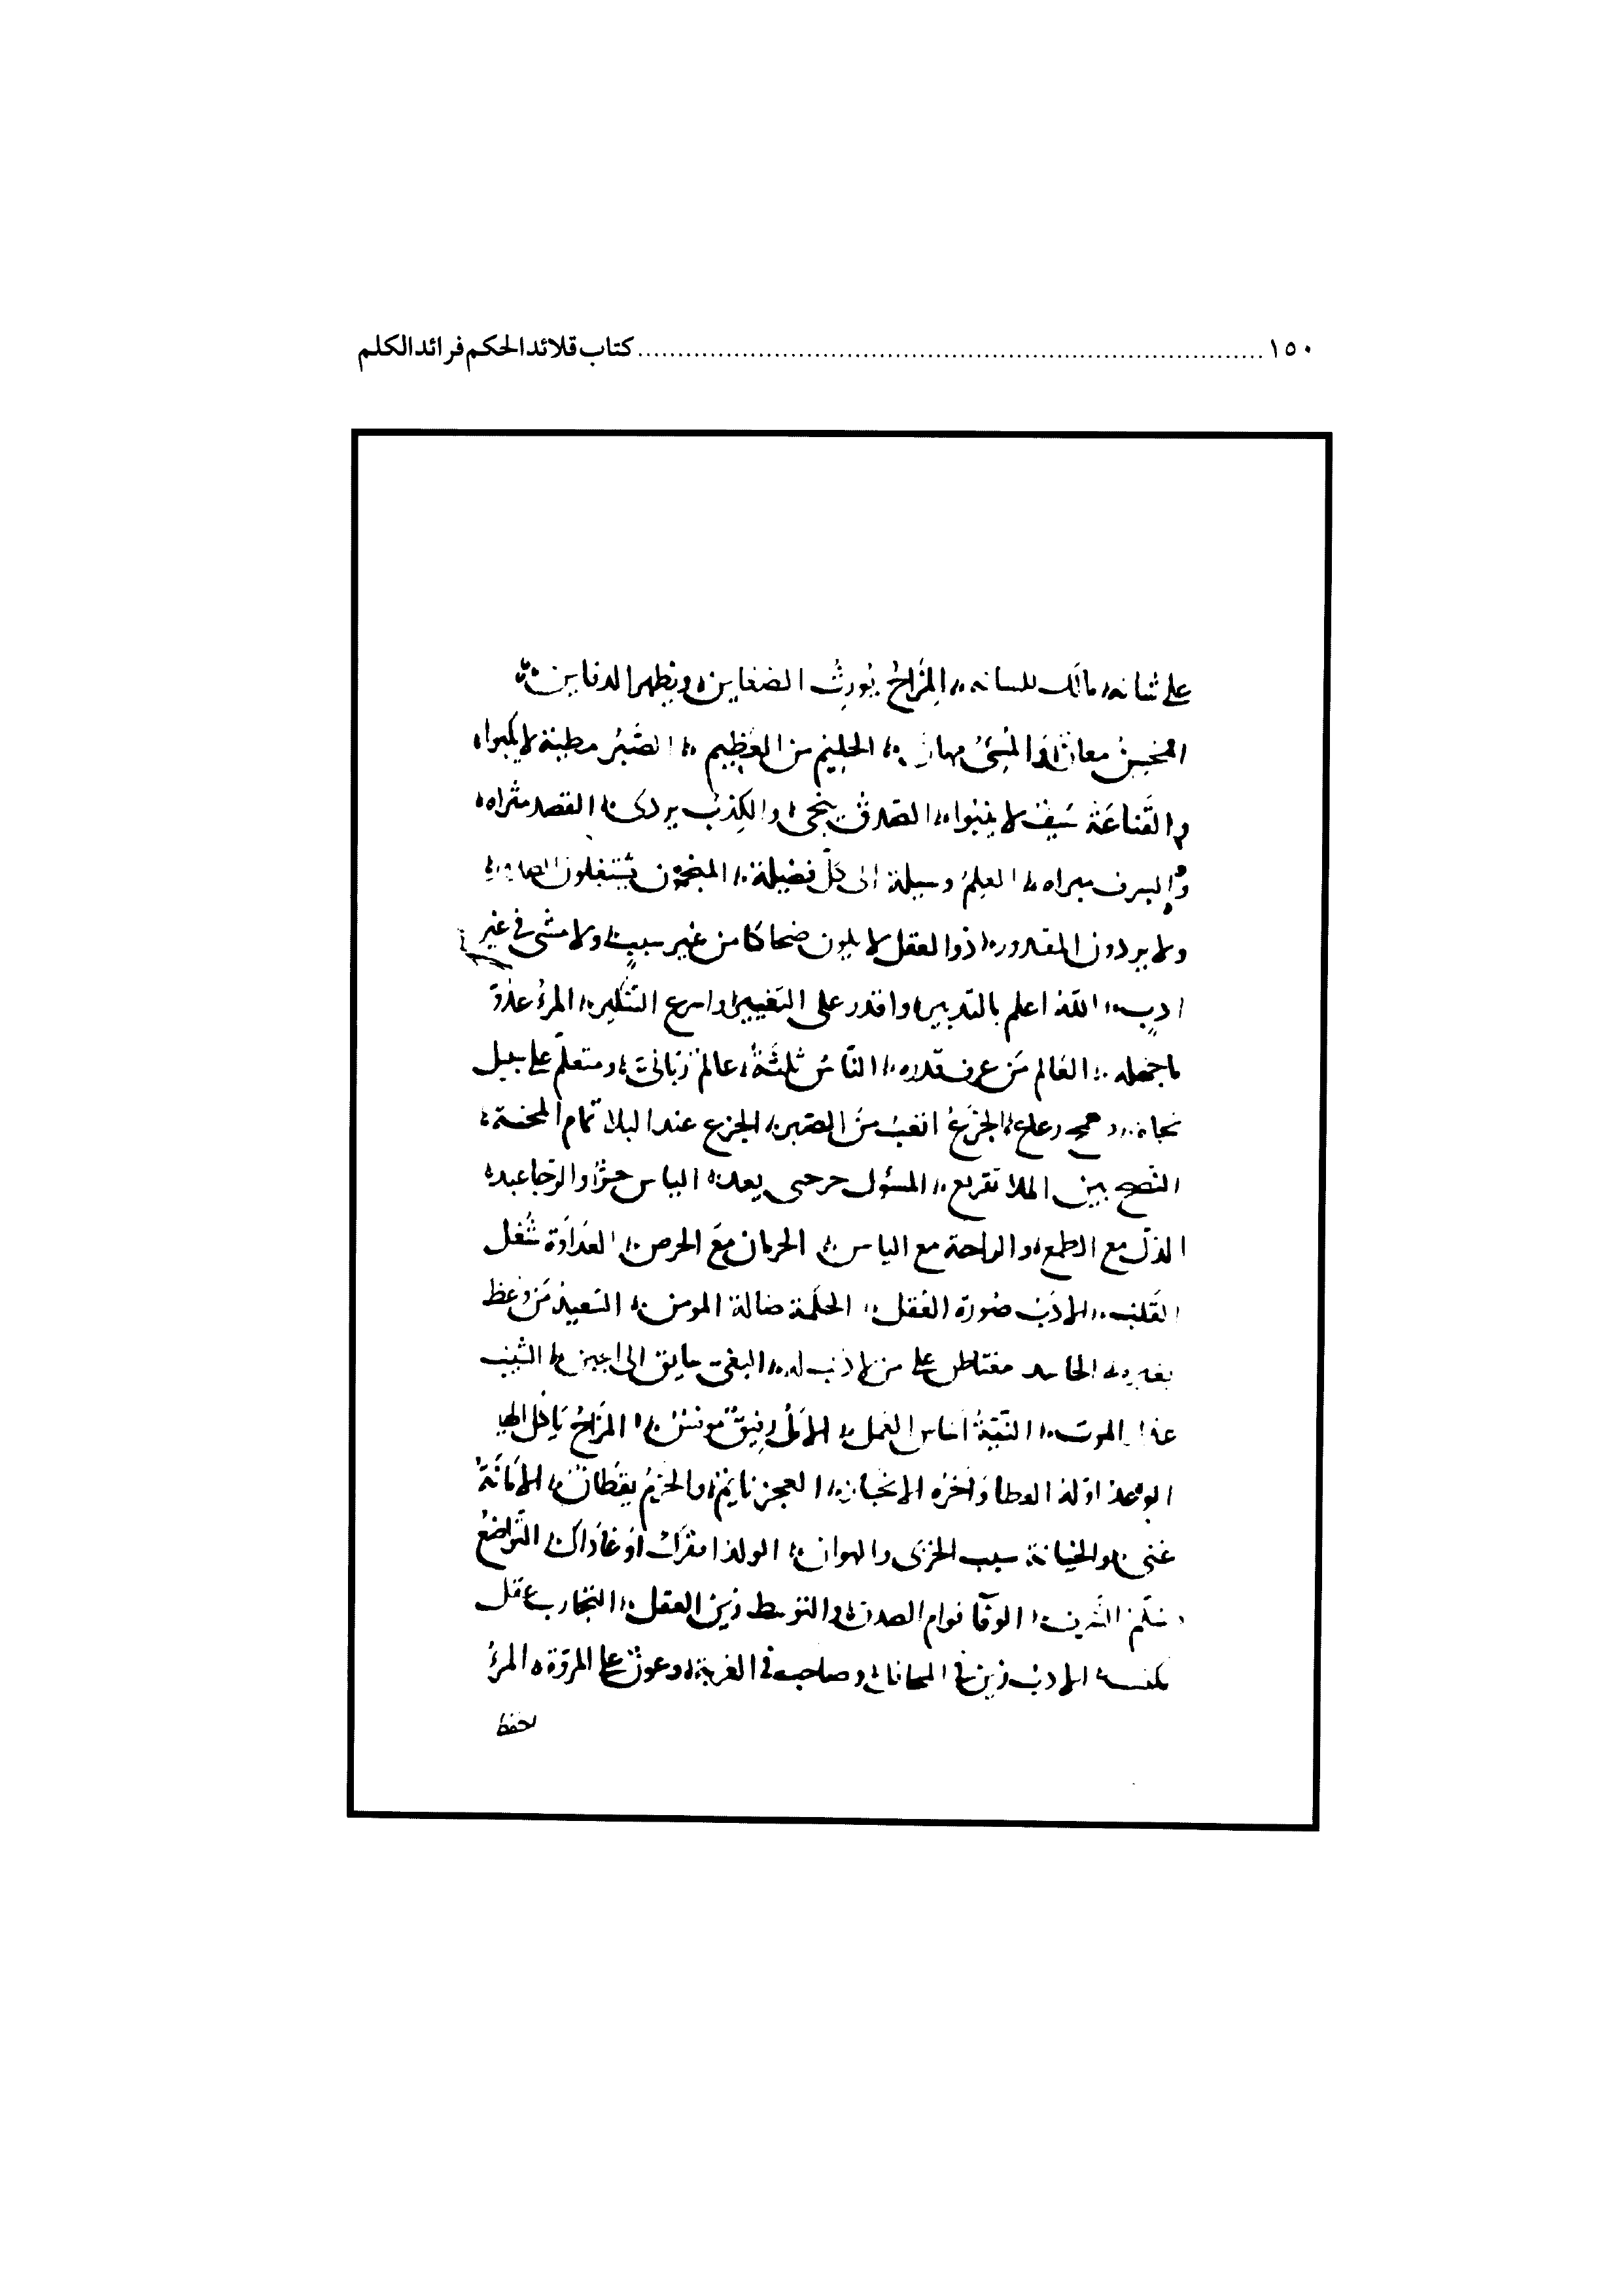 ١٥٠ ........ كتاب قلائد الحكم فرائد الكلم
على شانه، مالك للسانه،، المِزَاحُ يُورِثُ الضغاين، ويظهر الدفاين
المحسِنُ معانٌ، والمُسِئُ مهان،، الحليم من العظيم،، الصَّبرُ مطية لا يكبوا،
والقَناعَة سَيف لا ينبوا،، الصدق ينجى، والكِذبُ يردى،، القصد مثراه،
والسرف،، العلِمُ وسيلة الى كلّ فضيلة،، المنجمون
ولا يردون المقدور،، ذوا العقل لا يكون ضحاكا من غير سببٍ، ولا مشى فى غير
ادبٍ،، الله اعلم بالتدبير، واقدر على التغيير، واسرع التنكير،، المرءُ عدوّ
ما جهله،، العَالم مَن عرف قدره،، النّاسُ ثلثةٌ، عالمٌ ربّانىّ، ومتعلّم على سبيل
نجاة، وهمج رعاع،، الجَزَعُ اتعبُ منَ الصّبر،، الجزع عند البلا تمام المحنة،
النّصح بين الملا تقريع،، المسؤل حر حتى يعد، الياس حرٌّ، والرّجا عبد،
الذلّ مع الطمع، والراحة مع الياس،، الحرمان معَ الحرص،، العَدَاوَة شُغل
القَلب،، الادَبُ صُورَة العَقل،، الحكمة ضالة المومن،، السّعِيدُ مَن وُعظ
بغيره،، الحاسد مغتاظ على من لا ذنب له،، البغى سايق الى الحين،، الشيب
الموت،، النّيّةُ اَسَاس العَمل،، الاملُ رفيقٌ مونسٌ،، المزاحُ ياكل
الوعد اوّله العطا وآخره الانجاز،، العجز نايم، والحزمُ يقظان،، الاَمانَةُ
غنى، والخيانة سبب الخزى والهوان،، الولد
سُلّم الشرف،، الوَفآ قوام الصدق، والتوسط زين العقل،، التجارب عقل
الادبُ زين فى، وصاحب فى الغربة، وعونٌ على المروّة، المرءُ